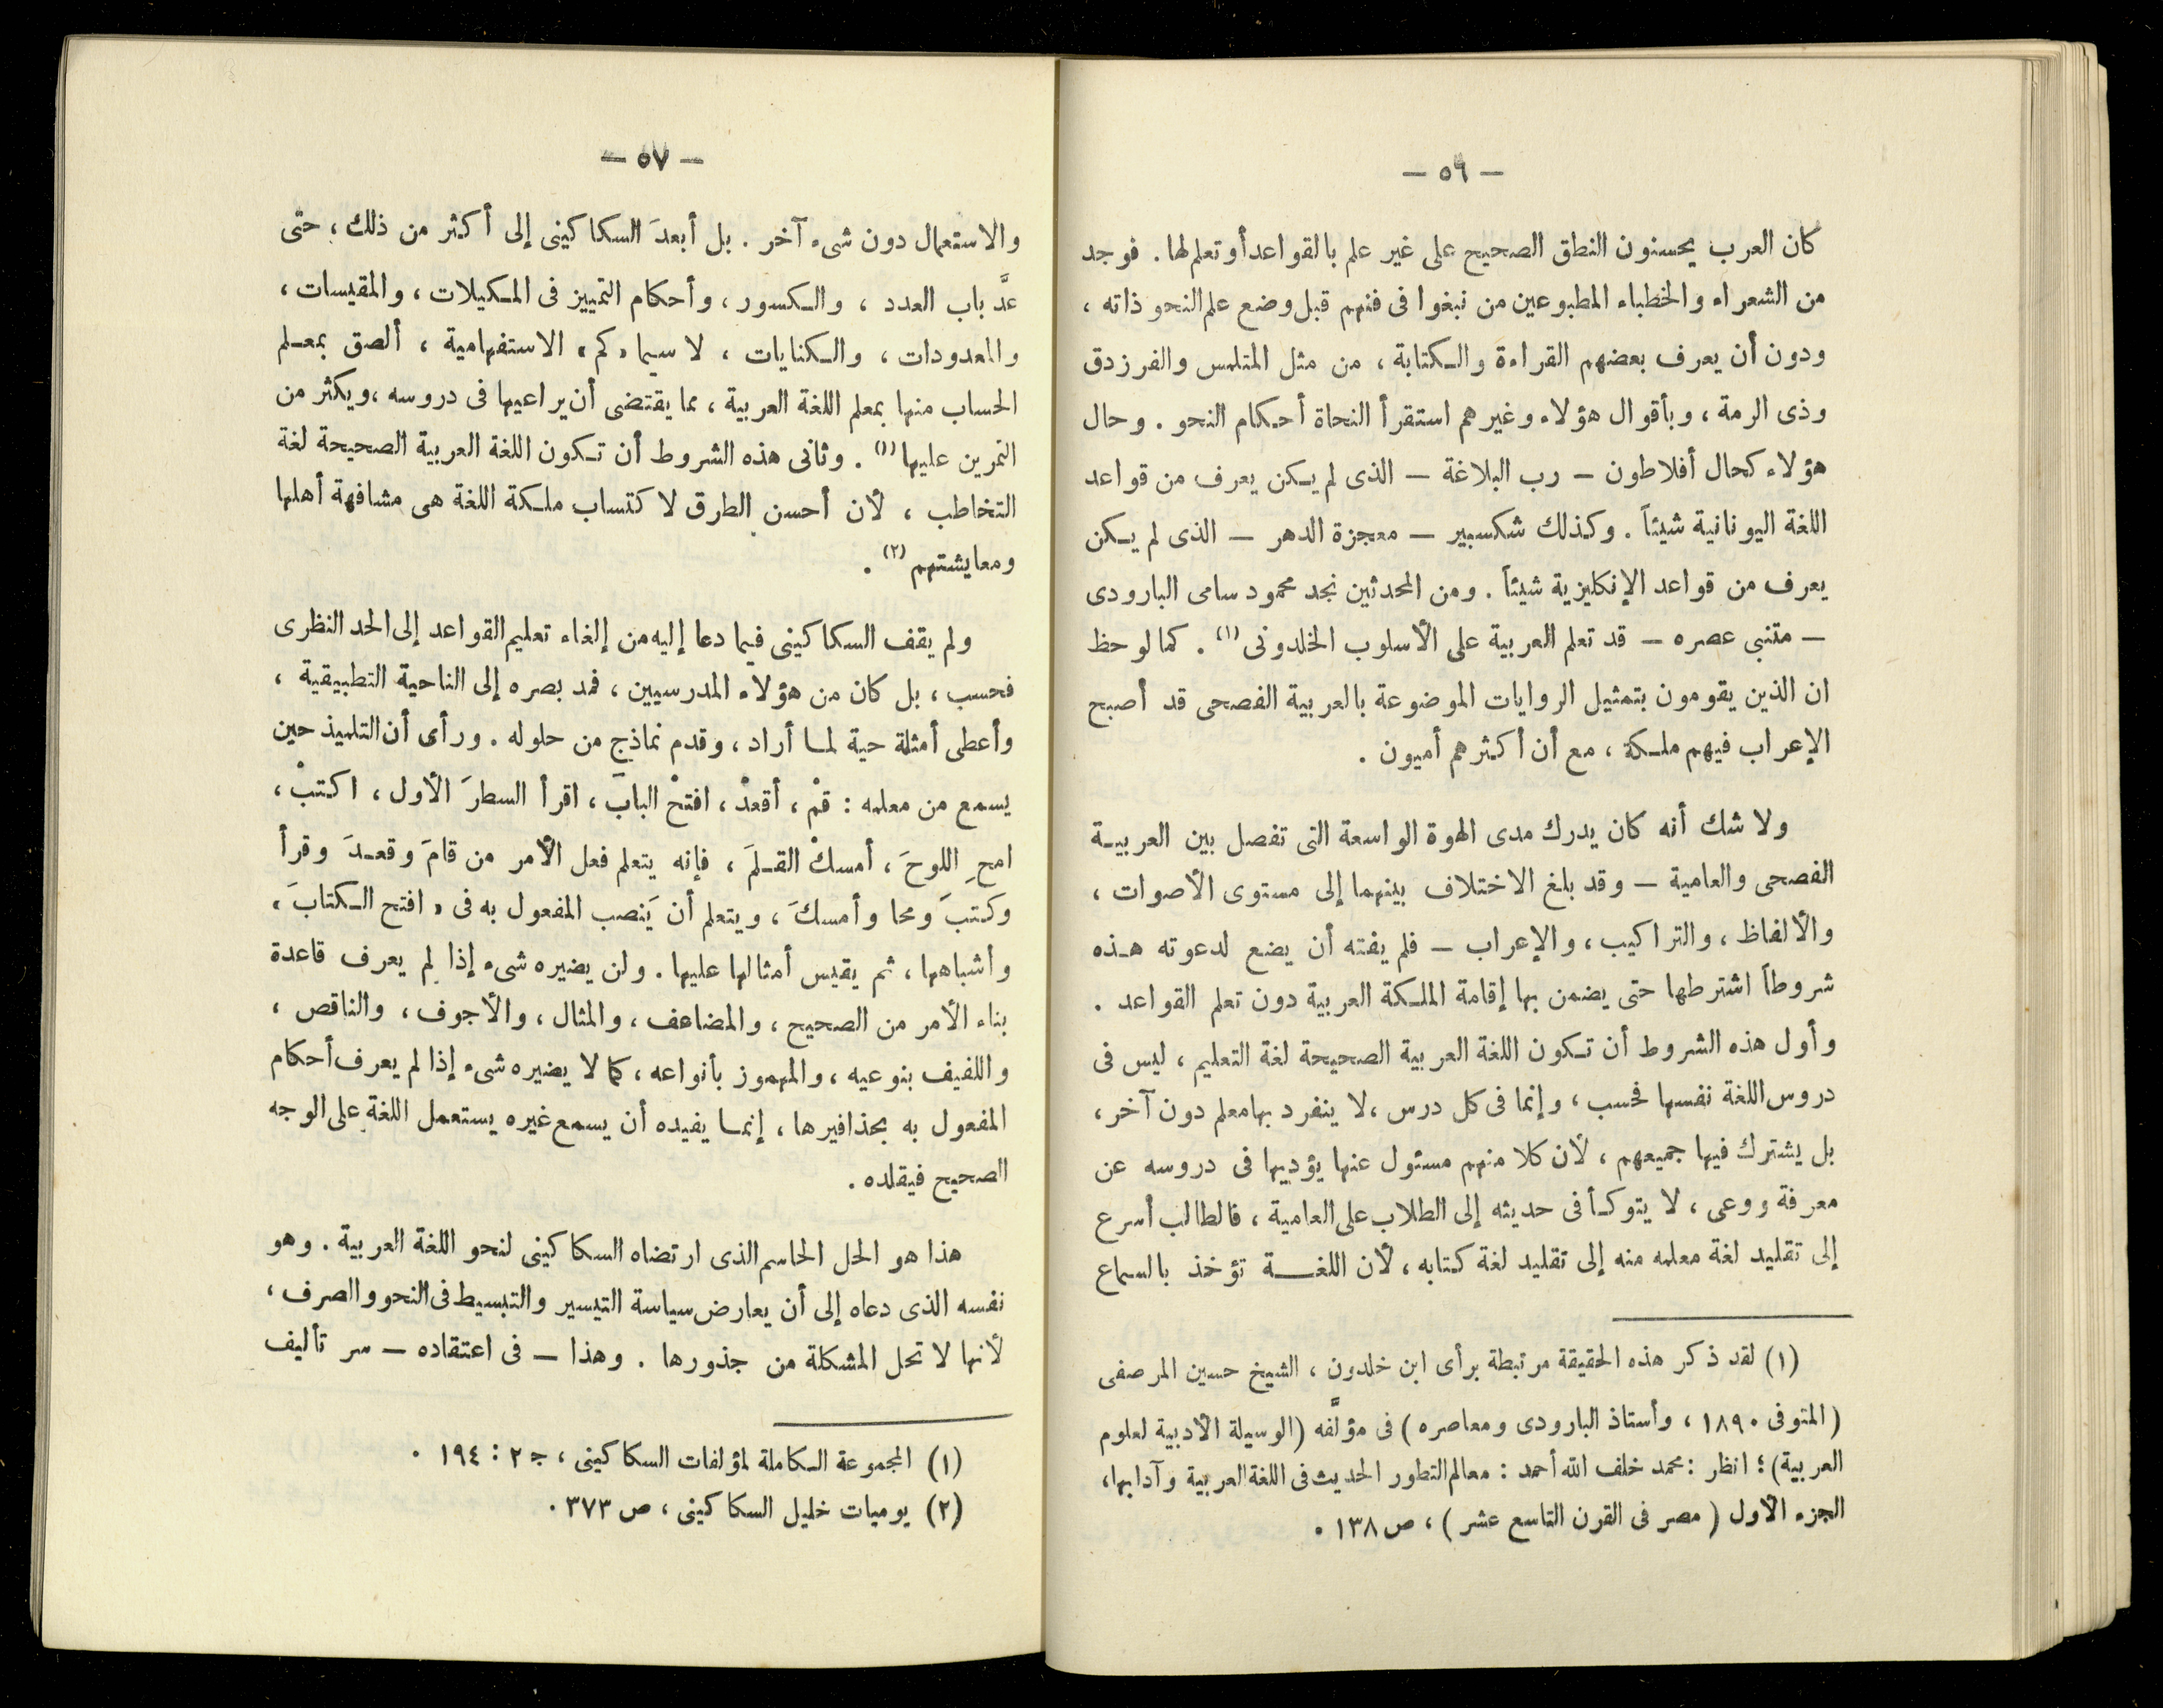 — ٥٦ —
كان العرب يحسنون النطق الصحيح على غير علم بالقواعد أو تعلم لها . فوجد
من الشعراء والخطباء المطبوعين من نبغوا فى فنهم قبل وضع علم النحو ذاته ،
ودون أن يعرف بعضهم القراءة والكتابة ، من مثل المتلمس والفرزدق
وذى الرمة ، وبأقوال هؤلاء وغيرهم استقرأ النحاة أحكام النحو . وحال
هؤلاء كحال أفلاطون — رب البلاغة — الذى لم يكن يعرف من قواعد
اللغة اليونانية شيئاً . وكذلك شكسبير — معجزة الدهر — الذى لم يكن
يعرف من قواعد الإنكليزية شيئاً . ومن المحدثين نجد محمود سامى البارودى
— متنبى عصره — قد تعلم العربية على الأسلوب الخلدونى (١) . كما لوحظ
ان الذين يقومون بتمثيل الروايات الموضوعة بالعربية الفصحى قد أصبح
الإعراب فيهم ملكة ، مع أن أكثرهم أميون .
ولا شك أنه كان يدرك مدى الهوة الواسعة التى تفصل بين العربية
الفصحى والعامية — وقد بلغ الاختلاف بينهما إلى مستوى الأصوات ،
والألفاظ ، والتراكيب ، والإعراب — فلم يفته أن يضع لدعوته هذه
شروطاً اشترطها حتى يضمن بها إقامة الملكة العربية دون تعلم القواعد .
وأول هذه الشروط أن تكون اللغة العربية الصحيحة لغة التعليم ، ليس فى
دروس اللغة نفسها فحسب ، وإنما فى كل درس ، لا ينفرد بها معلم دون آخر ،
بل يشترك فيها جميعهم ، لأن كلا منهم مسئول عنها يؤديها فى دروسه عن
معرفة ووعى ، لا يتوكأ فى حديثه إلى الطلاب على العامية ، فالطالب أسرع
إلى تقليد لغة معلمه منه إلى تقليد لغة كتابه ، لأن اللغة تؤخذ بالسماع
(١) لقد ذكر هذه الحقيقة مرتبطة برأى ابن خلدون ، الشيخ حسين المرصفى
( المتوفى ١٨٩٠ ، وأستاذ البارودى ومعاصره ) فى مؤلَّفه (الوسيلة الأدبية لعلوم
العربية) ؛ انظر : محمد خلف الله أحمد : معالم التطور الحديث فى اللغة العربية وآدابها ،
الجزء الأول ( مصر فى القرن التاسع عشر ) ، ص ١٣٨ .
— ٥٧ —
والاستعمال دون شىء آخر . بل أبعدَ السكاكينى إلى أكثر من ذلك ، حتى
عدَّ باب العدد ، والكسور ، وأحكام التمييز فى المكيلات ، والمقيسات ،
والمعدودات ، والكنايات ، لا سيما « كم » الاستفهامية ، ألصق بمعلم
الحساب منها بمعلم اللغة العربية ، مما يقتضى أن يراعيها فى دروسه ، ويكثر من
التمرين عليها (١) . وثانى هذه الشروط أن تكون اللغة العربية الصحيحة لغة
التخاطب ، لأن أحسن الطرق لاكتساب ملكة اللغة هى مشافهة أهلها
ومعايشتهم (٢) .
ولم يقف السكاكينى فيما دعا إليه من إلغاء تعليم القواعد إلى الحد النظرى
فحسب ، بل كان من هؤلاء المدرسيين ، فمد بصره إلى الناحية التطبيقية ،
وأعطى أمثلة حية لما أراد ، وقدم نماذج من حلوله . ورأى أن التلميذ حين
يسمع من معلمه : قمْ ، أقعدْ ، افتحْ البابَ ، اقرأ السطرَ الأول ، اكتبْ ،
امحِ اللوحَ ، أمسكْ القلمَ ، فإنه يتعلم فعل الأمر من قامَ وقعدَ وقرأ
وكتبَ ومحا وأمسكَ ، ويتعلم أن يَنصب المفعول به فى « افتح الكتابَ »
وأشباهها ، ثم يقيس أمثالها عليها . ولن يضيره شىء إذا لم يعرف قاعدة
بناء الأمر من الصحيح ، والمضاعف ، والمثال ، والأجوف ، والناقص ،
واللفيف بنوعيه ، والمهموز بأنواعه ، كما لا يضيره شىء إذا لم يعرف أحكام
المفعول به بحذافيرها ، إنما يفيده أن يسمع غيره يستعمل اللغة على الوجه
الصحيح فيقلده .
هذا هو الحل الحاسم الذى ارتضاه السكاكينى لنحو اللغة العربية . وهو
نفسه الذى دعاه إلى أن يعارض سياسة التيسير والتبسيط فى النحو والصرف ،
لأنها لا تحل المشكلة من جذورها . وهذا — فى اعتقاده — سر تأليف
(١) المجموعة الكاملة لمؤلفات السكاكينى ، ج ٢ : ١٩٤ .
(٢) يوميات خليل السكاكينى ، ص ٣٧٣ .